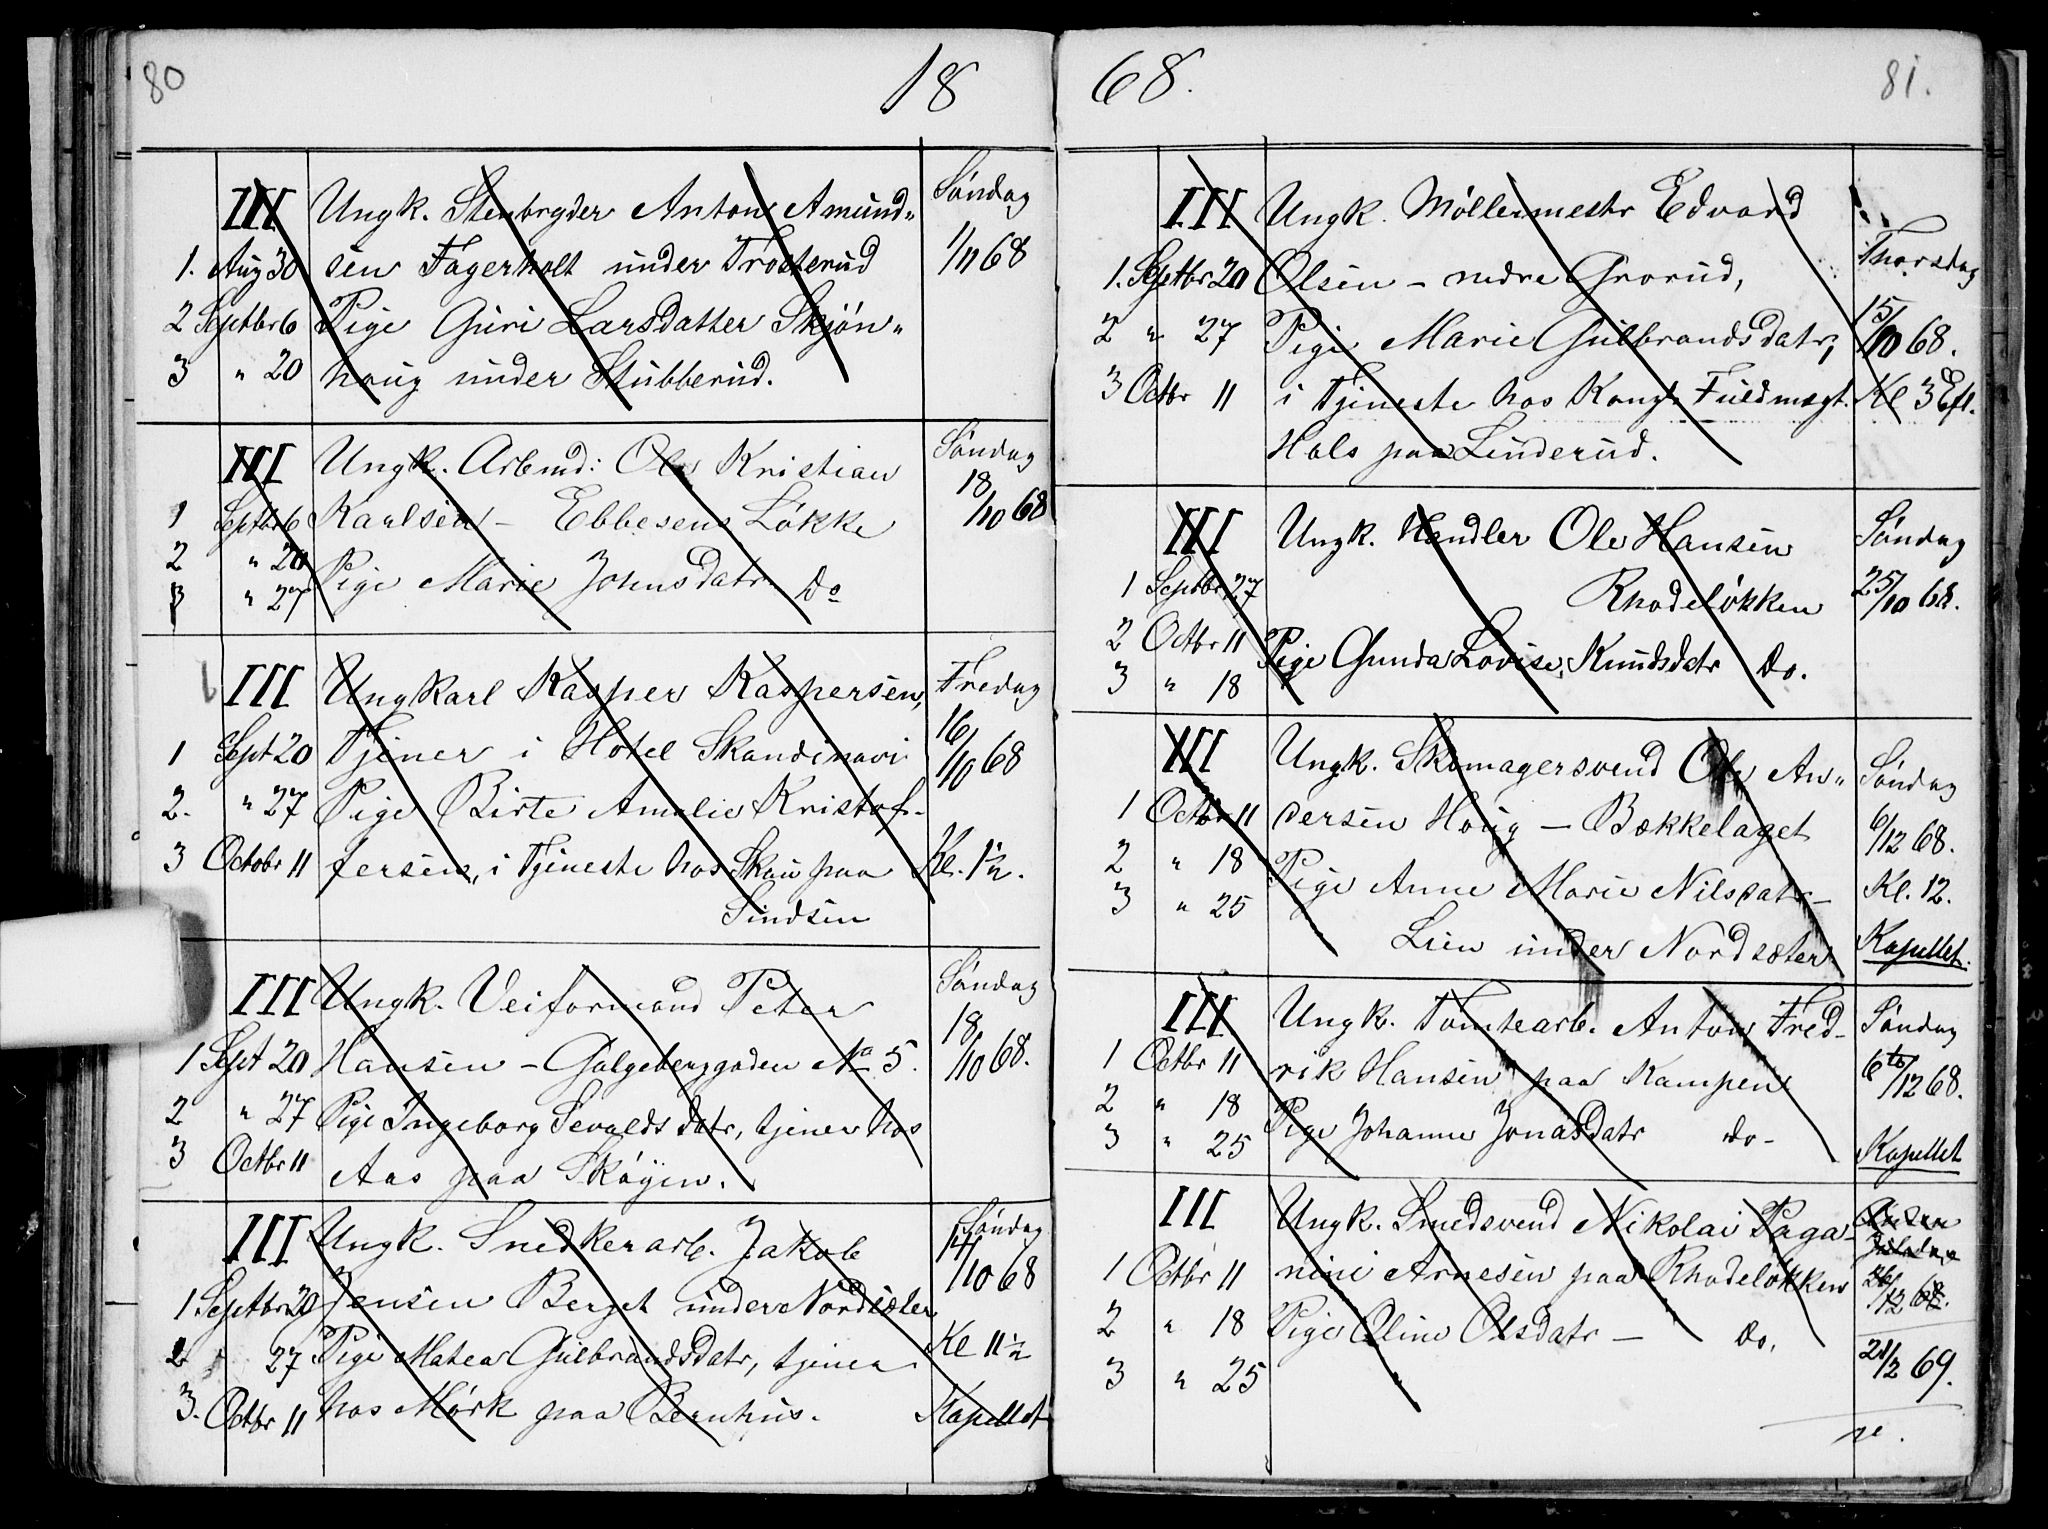 80
18
III Ungk. Stenbryder Anton Amund„ Søndag
1. Aug 30 sen Fagerholt under Trosterud 1/11 68
2 Septbr 6 Pige Guri Larsdatter Skjøn„
3 „ 20 haug under Stubberud.
III Ungk. Arbmd: Ole Kristian Søndag
1 Septbr 6 Karlsen – Ebbesens Løkke 18/10 68
2 „ 20 Pige Marie Johnsdatr Do
3 „ 27
III Ungkarl Kasper Kaspersen, Fredag
1 Sept 20 Tjener i Hotel Skandinavi 16/10 68
2. „ 27 Pige Birte Amalie Kristof-
3 Octobr 11 fersen, i Tjeneste hos Skau paa Kl. 1½.
Sindsen
III Ungk. Veiformand Peter Søndag
1 Sept 20 Hansen – Galgeberggaden No 5. 18/10 68.
2 „ 27 Pige Ingeborg Sevaldsdatr, tjener hos
3 Octbr 11 Aas paa Skøyen.
III Ungk. Snedkerarb. Jakob Søndag
1 Septbr 20 Jensen Berget under Nordsæter /10 68
2 27 Pige Matea Gulbrandsdatr, tjener Kl 11½
3. Octbr 11 hos Mørk paa Bernhus. Kapellet
68.
81.
III Ungk. Møllermestr Edvard
1. Septbr 20 Olsen – nedre Grorud, Thorsdag
2 „ 27 Pige Marie Gulbrandsdatr, 15/10 68.
3 Octbr 11 i Tjeneste hos Kongs Fuldmægt. Kl 3 Eft.
Hals paa Linderud.
III Ungk. Handler Ole Hansen Søndag
1 Septbr 27 Rhodeløkken 25/10 68.
2 Octbr 11 Pige Gunda Lovise Knudsdatr Do.
3 „ 18
III Ungk. Skomagersvend Ole An„ Søndag
1 Octbr 11 dersen Houg – Bækkelaget 6/12 68.
2 „ 18 Pige Anne Marie Nilsdatr – Kl. 12.
3 „ 25 Lien under Nordsæter Kapellet.
III Ungk. Tomtearb. Anton Fred- Søndag
1 Octbr 11 rik Hansen paa Kampen 6te/12 68.
2 „ 18 Pige Johanne Jonasdatr do–
3 „ 25 Kapellet
III Ungk. Smedsvend Nikolai Paga- Anden Juledag
1 Octbr 11 nini Arnesen paa Rhodeløkken 26/12 68.
2 „ 18 Pige Oline Olsdatr – Do.
3 „ 25 21/2 69.